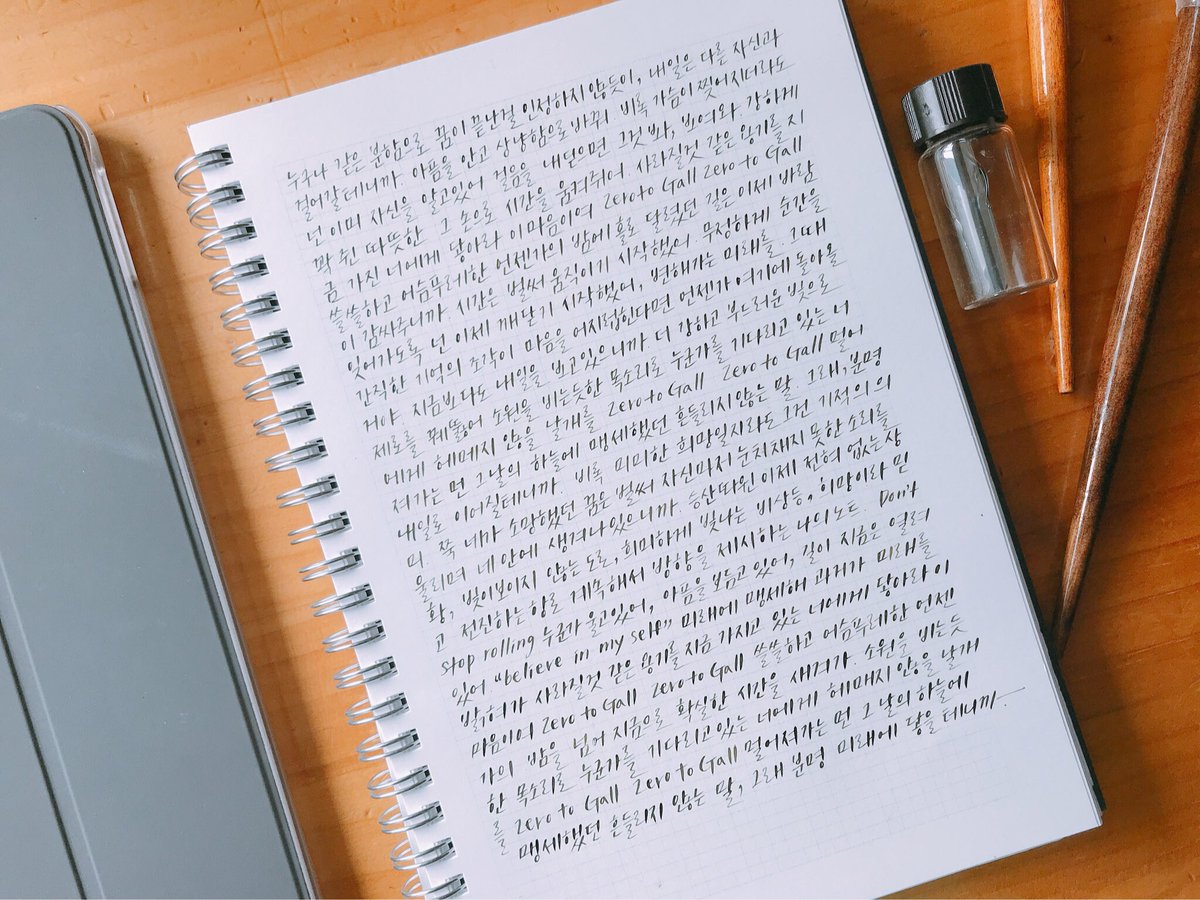 누구나 같은 분함으로 꿈이 끝난걸 인정하지 않듯이, 내일은 다른 자신과
걸어갈테니까. 아픔을 안고 상냥함으로 바꿔 비록 가슴이 찢어지더라도
넌 이미 자신을 알고있어 걸음을 내딛으면 그것봐, 보여와. 강하게
꽉 쥔 따뜻한 그 손으로 시간을 움켜쥐어. 사라질것 같은 용기를 지
금 가진 너에게 닿아라 이 마음이여 Zero to Gall Zero to Gall
쓸쓸하고 어슴푸레한 언젠가의 밤에 홀로 달렸던 길은 이제 바람
이 감싸주니까. 시간은 벌써 움직이기 시작했어 무정하게 순간을
잊어가도록 넌 이제 깨닫기 시작했어, 변해가는 미래를. 그때
간직한 기억의 조각이 마음을 어지럽힌다면 언젠가 여기에 돌아올
거야 지금보다도 내일을 보고있으니까 더 강하고 부드러운 빛으로
제로를 꿰뚫어 소원을 비는듯한 목소리로 누군가를 기다리고 있는 너
에게 헤메지 않을 날개를 Zero to Gall Zero to Gall 멀어
져가는 먼 그날의 하늘에 맹세했던 흔들리지 않는 말. 그래, 분명
내일로 이어질테니까. 비록 미미한 희망일지라도 그건 기적의 의
미. 쭉 네가 소망했던 꿈은 벌써 자신마저 눈치채지 못한 소리를
울리며 네 안에 생겨나있으니까. 승산따윈 이제 전혀 없는 상
황, 빛이 보이지 않는 도로, 희미하게 빛나는 비상등. '희망이라 믿
고 전진하는 항로 계속해서 방향을 제시하는 나의 노트. Don't
stop rolling 누군가 울고있어, 아픔을 보듬고 있어, 길이 지금은 열려
있어. "believe in my self" 미래에 맹세해 과거가 미래를
밝혀가 사라질것 같은 용기를 지금 가지고 있는 너에게 닿아라 이
마음이여 Zero to Gall Zero to Gall 쓸쓸하고 어슴푸레한 언젠
가의 밤을 넘어 지금으로 확실한 시간을 새겨가. 소원을 비는듯
한 목소리로 누군가를 기다리고 있는 너에게 헤메지 않을 날개
를 Zero to Gall Zero to Gall 멀어져가는 먼 그 날의 하늘에
맹세했던 흔들리지 않는 말, 그래 분명 미래에 닿을테니까.